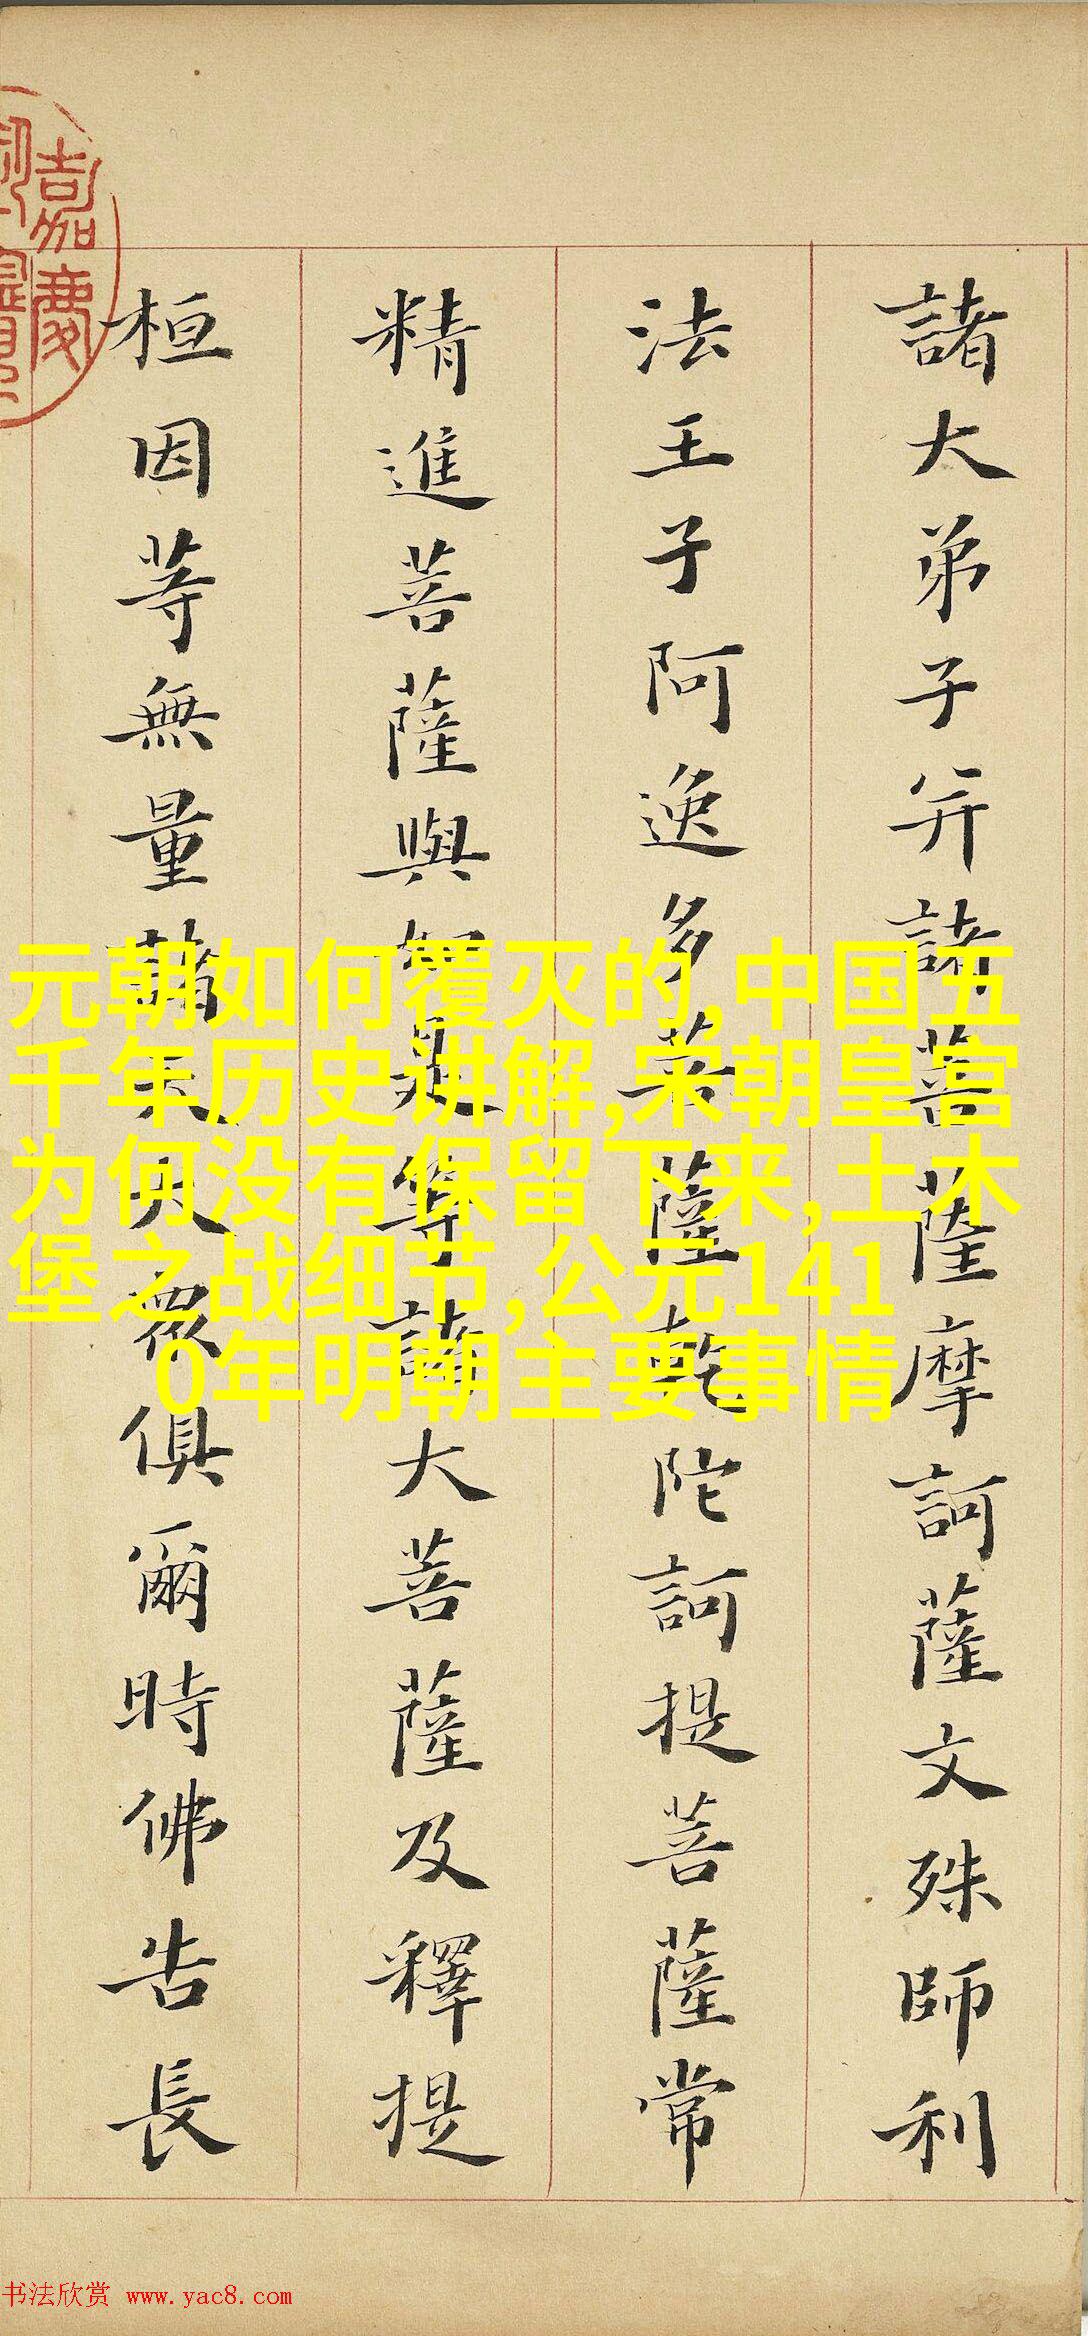 諸大弟子并諸菩薩摩訶薩文殊師利
法王子阿逸多菩薩乾陀訶提菩薩常
精進菩薩與如是等諸大菩薩及釋提
桓因等無量諸天大眾俱爾時佛告長
嘉慶
元朝如何覆灭的,中国五
千年历史讲解,宋朝皇宫
为何没有保留下来,土木
堡之战细节,公元141
0年明朝主要事情
书法欣赏 www.yac8.com